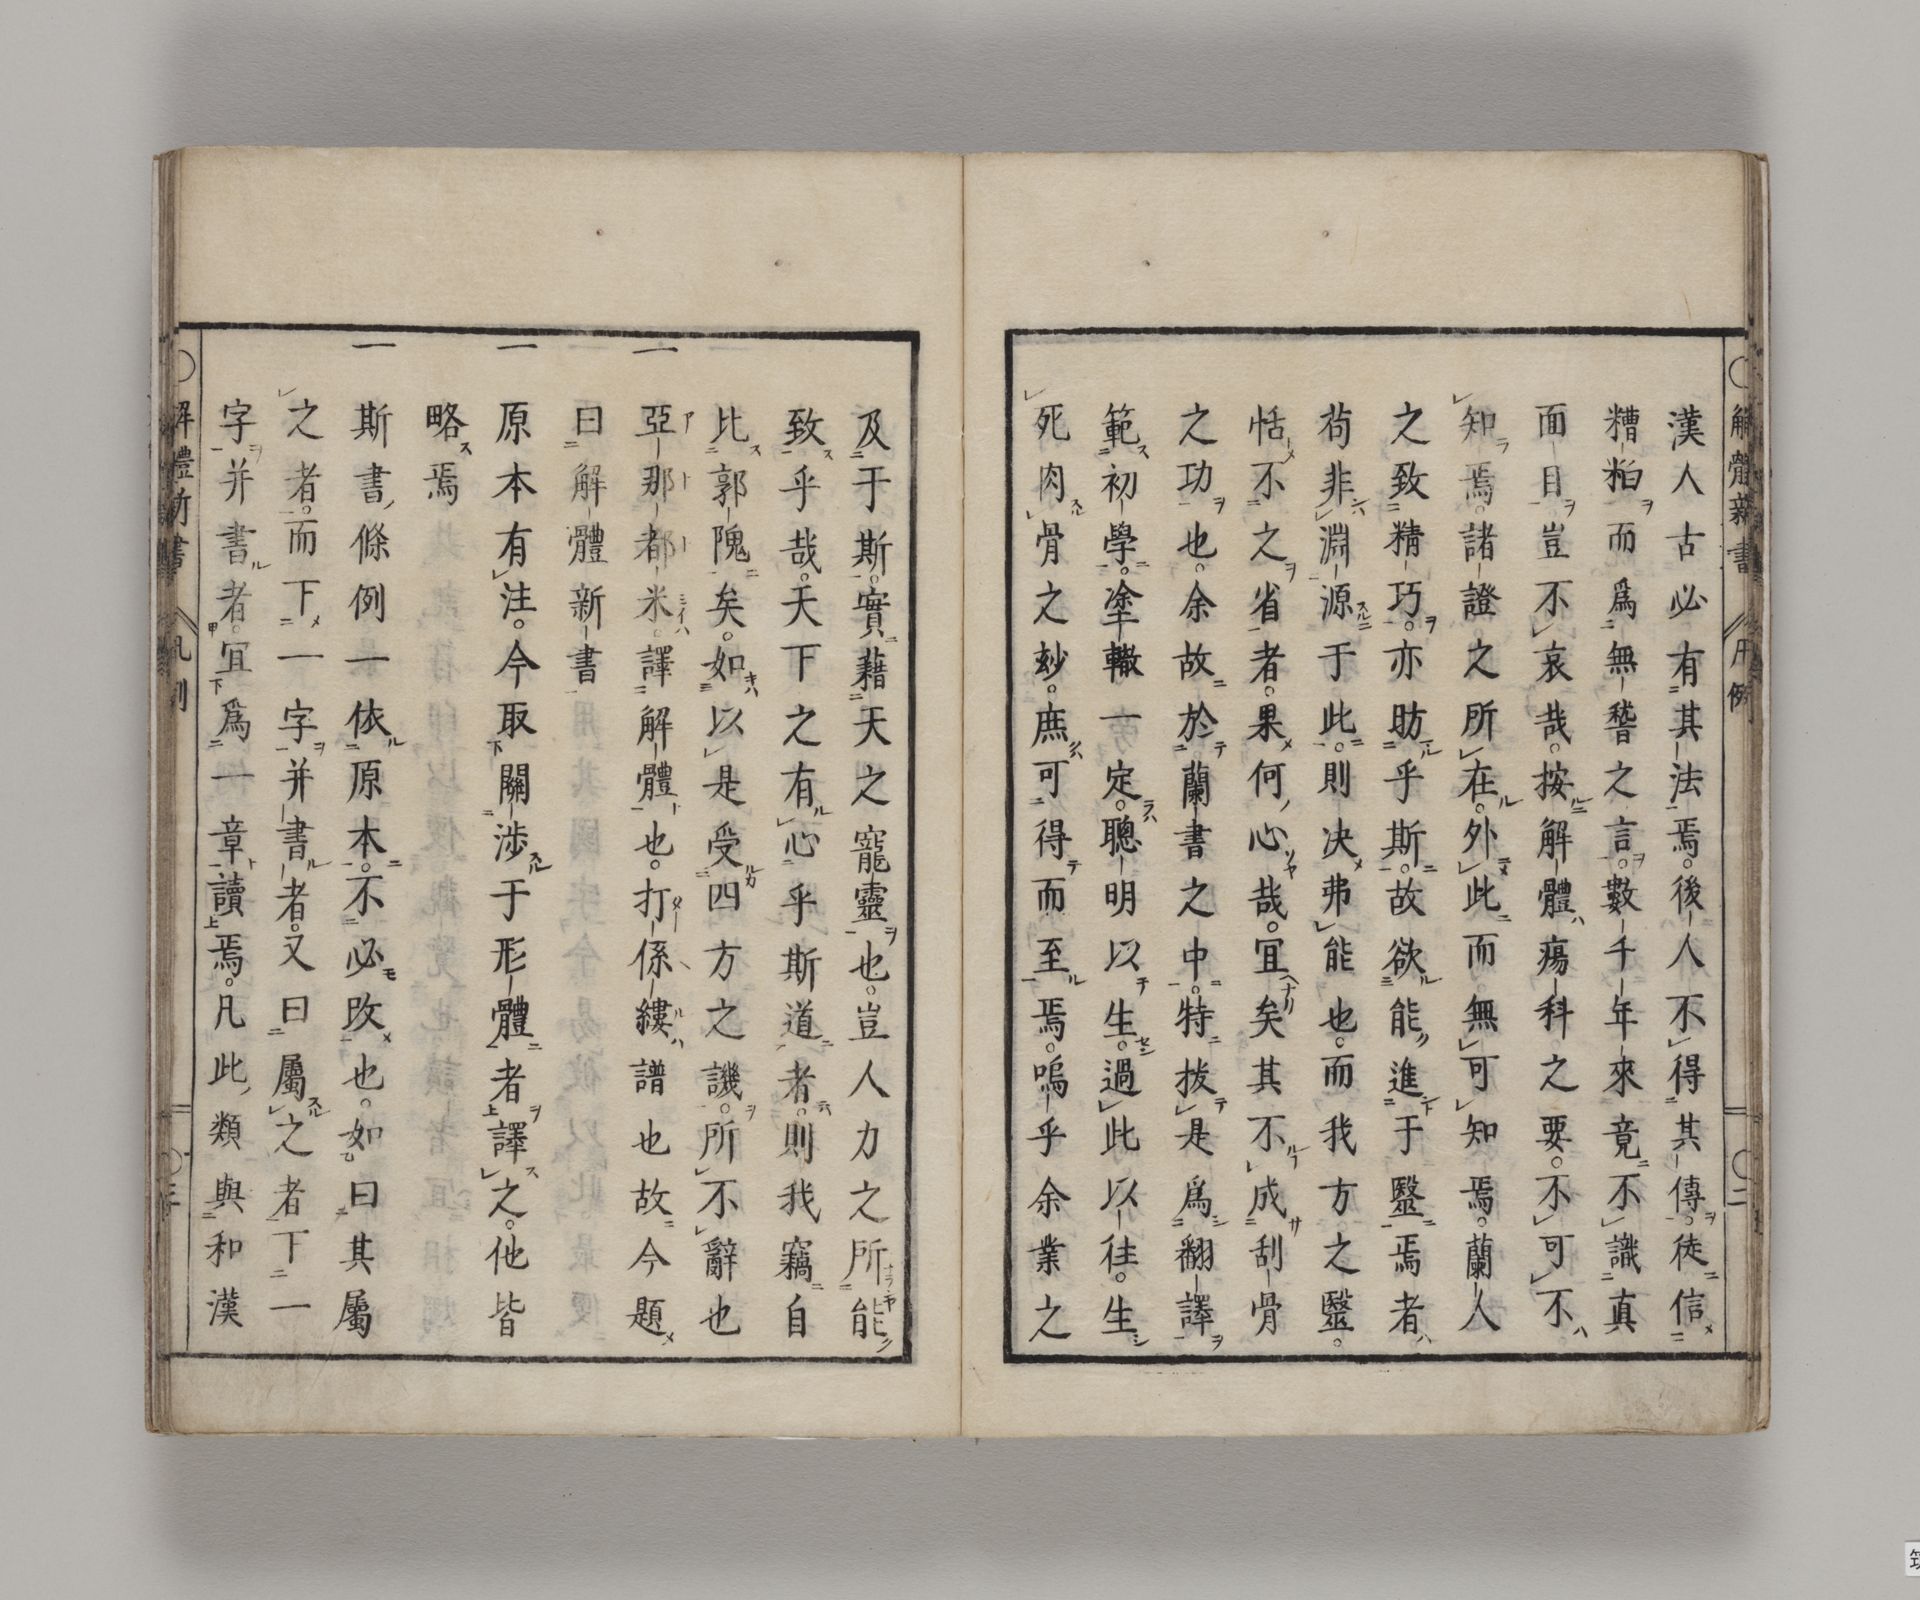 漢人古必有其法焉。後人不得其傳。徒信
糟粕而爲無稽之言。數千年來竟不識真
面目。豈不哀哉。按解體瘍科之要。不可不
知焉。諸證之所在。外此而無可知焉。蘭人
之致精巧。亦昉乎斯。故欲能進于毉焉者
苟非淵源于此。則决弗能也。而我方之毉。
恬不之省者。果何心哉。宜矣其不成刮骨
之功也。余故於蘭書之中。特拔是爲翻譯
範初學。塗轍一定。聰明以生。過此以徃。生
死肉骨之妙。庶可得而至焉。嗚乎余業之
及于斯。實藉天之寵靈也。豈人力之所能
致乎哉。天下之有心乎斯道者。則我竊自
比郭隗矣。如以是受四方之譏。所不辭也
一亞那都米。譯解體也。打係縷譜也故今題
曰解體新書
一原本有注。今取關渉于形體者譯之。他皆
略焉
一斯書條例一依原本。不必改也。如曰其屬
之者。而下一字并書者。又曰屬之者下一
字并書者。宜爲一章讀焉。凡此類與和漢
解體新書
凡例